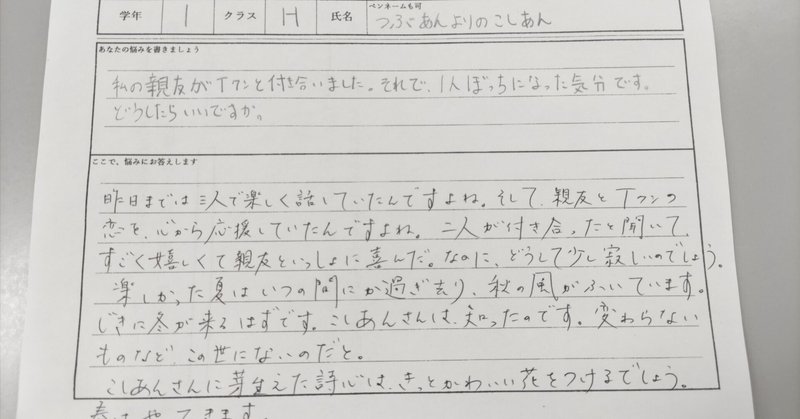 学年 1 クラス H 氏名 ペンネームも可 つぶあんよりのこしあん
あなたの悩みを書きましょう
私の親友がTクンと付き合いました。それで、1人ぼっちになった気分です。
どうしたらいいですか。
ここで、悩みにお答えします
昨日までは三人で楽しく話していたんですよね。そして、親友とTクンの
恋を、心から応援していたんですよね。二人が付き合ったと聞いて、
すごく嬉しくて親友といっしょに喜んだ。なのに、どうして少し寂しいのでしょう。
楽しかった夏はいつの間にか過ぎ去り、秋の風がふいています。
じきに冬が来るはずです。こしあんさんは、知ったのです。変わらない
ものなど、この世にないのだと。
こしあんさんに芽生えた詩心は、きっとかわいい花をつけるでしょう。
春はやってきます。